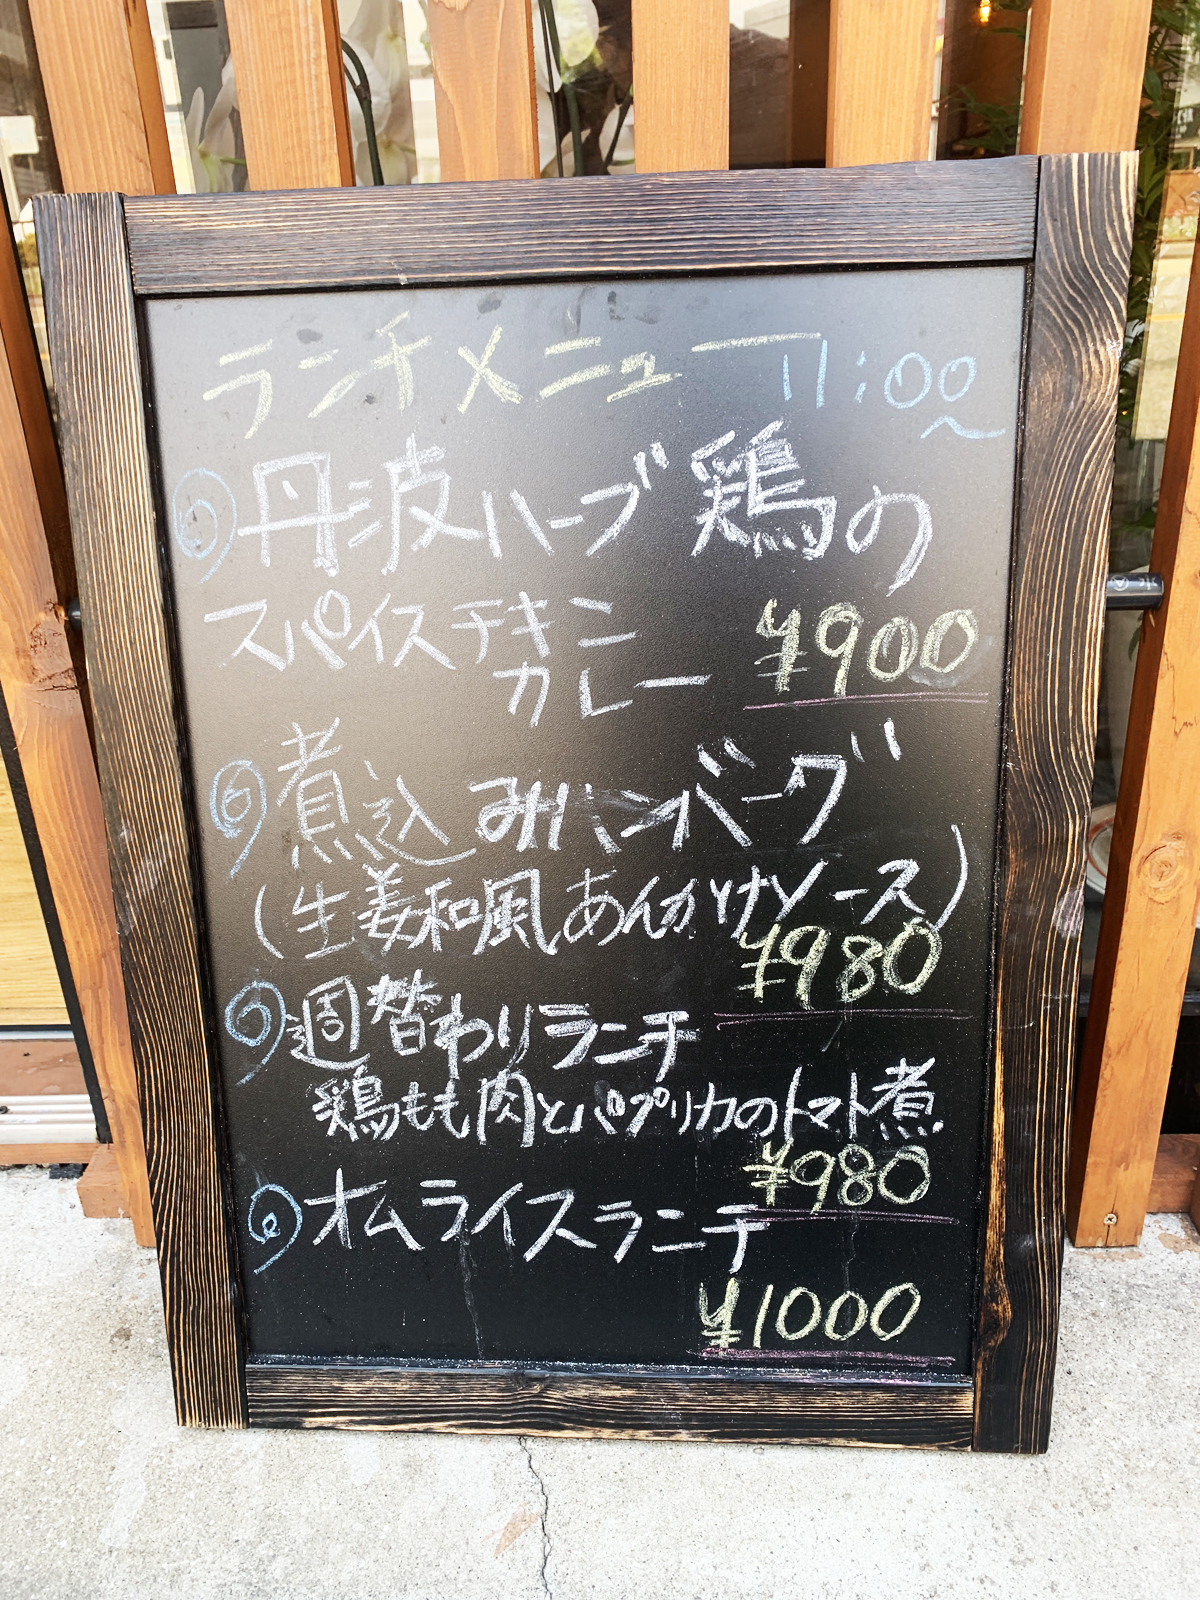 ランチメニュー 11:00〜
丹波ハーブ鶏の
スパイスチキン
カレー ¥900
煮込みハンバーグ
(生姜和風あんかけソース)
¥980
週替わりランチ
鶏もも肉とパプリカのトマト煮
¥980
オムライスランチ
¥1000